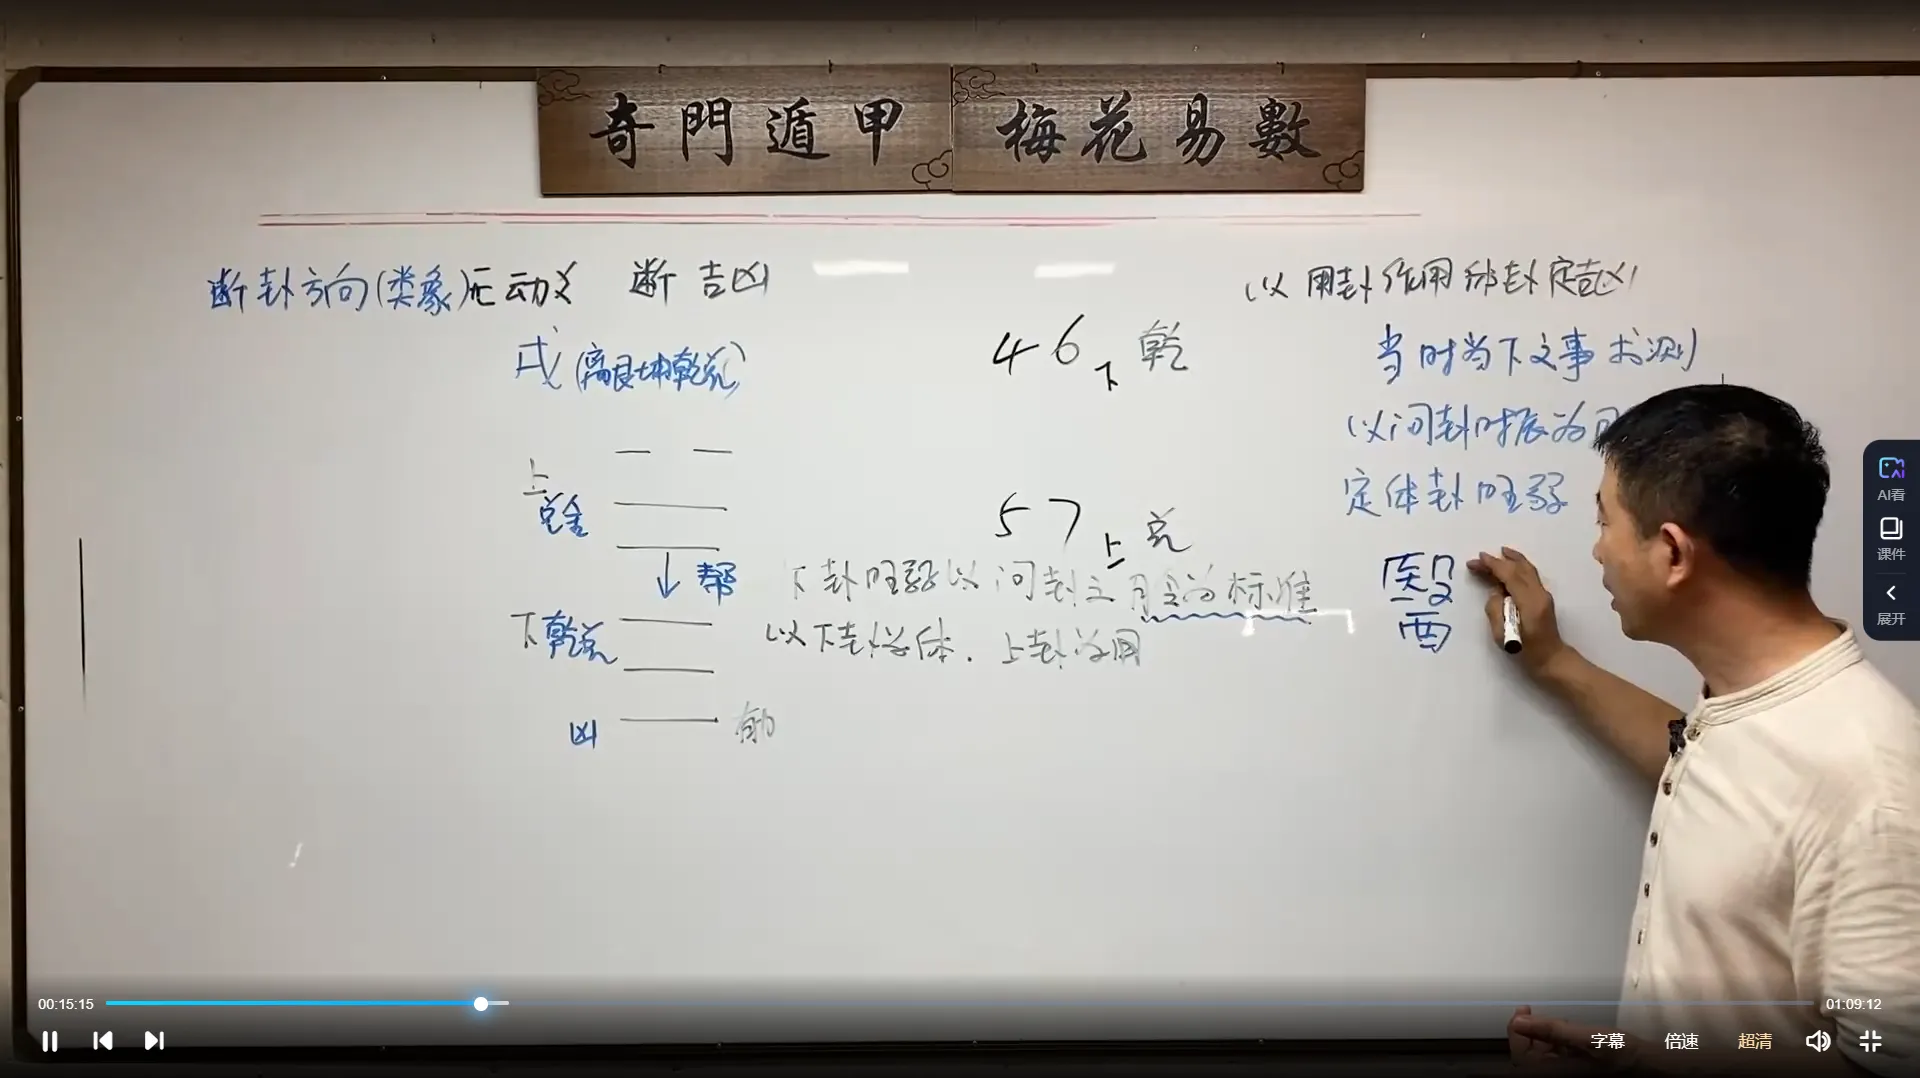 奇門遁甲 梅花易數
断卦方向(类象)无动爻 断吉凶
戌(离艮坤乾兑)
上
兑金
帮
下乾兑
凶
46下 乾
57上 兑
下卦旺弱以问卦之月令为标准
以下卦为体.上卦为用
以用卦作用体卦定吉凶
当时当下之事求测
以问卦时辰为
定体卦旺弱
醫
AI看
课件
展开
00:15:15
01:09:12
字幕 倍速 超清